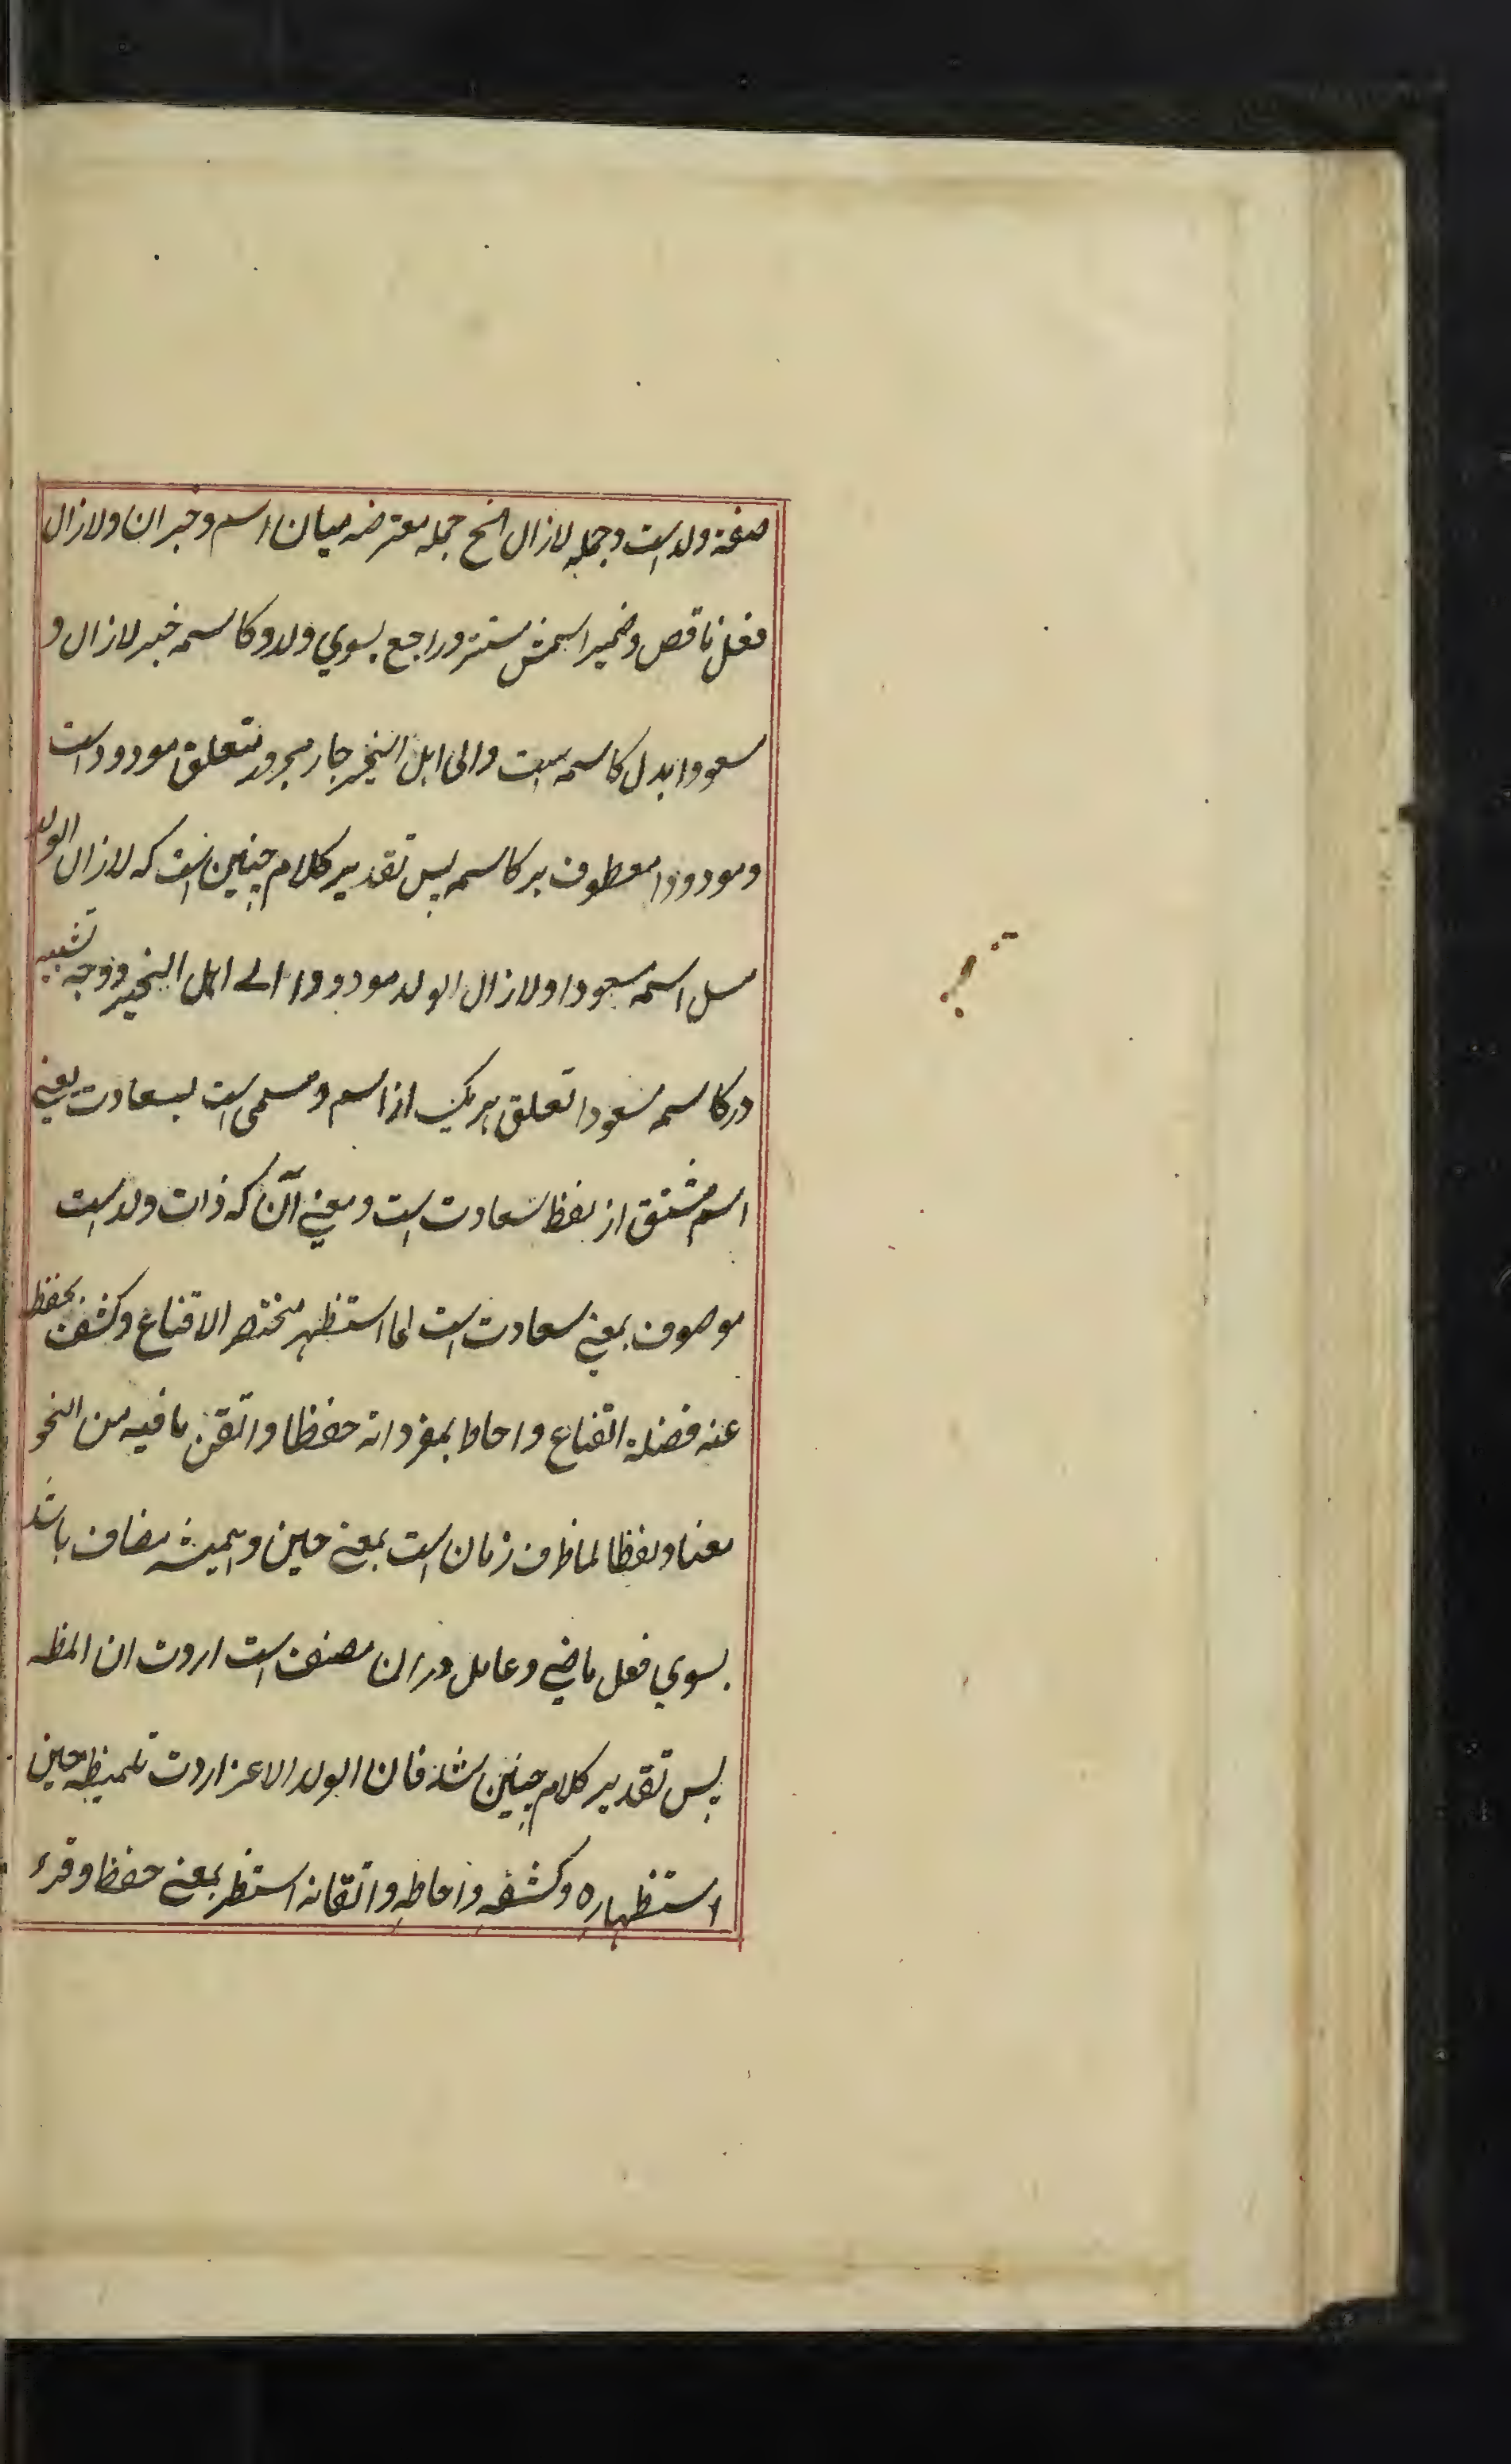 صفة ولد است و جمله لازال الخ جمله معترضه میان اسم و خبر ان و لازال
فعل ناقص و ضمیر اسمش مستتر و راجع بسوي ولد و کاسمه خبر لازال و
سعودا بدل کاسمه است و الی اهل الخیر جار مجرور متعلق مودود است
و مودودا معطوف بر کاسمه پس تقدیر کلام چنین است که لازال الولد
مسل اسمه مسعودا و لازال الولد مودودا الے اهل الخیر و وجه تشبیه
در کاسمه مسعودا تعلق هر یک از اسم و مسمی است بسعادت یعنے
اسم مشتق از لفظ سعادت است و معنے آن که ذات ولد است
موصوف بمعنے سعادت است لما استظهر مختصر الاقناع و کشف بحفظ
عنه فضلة القناع و احاط بمفرداته حفظا و اتقن ما فیه من النحو
معنا و لفظا لما ظرف زمان است بمعنے حین و همیشه مضاف باشد
بسوي فعل ماضے و عامل دران مصنف است اردت ان المظه
پس تقدیر کلام چنین شد فان الولد الاعز اردت تلمیظه حین
استظهاره و کشفه و احاطه و اتقانه استظهر بمعنے حفظ و قرء